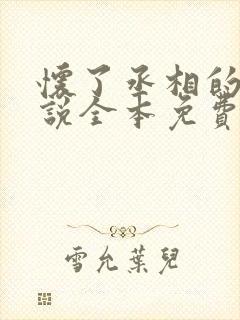 懷了丞相的
說全本免費
雪允葉兒